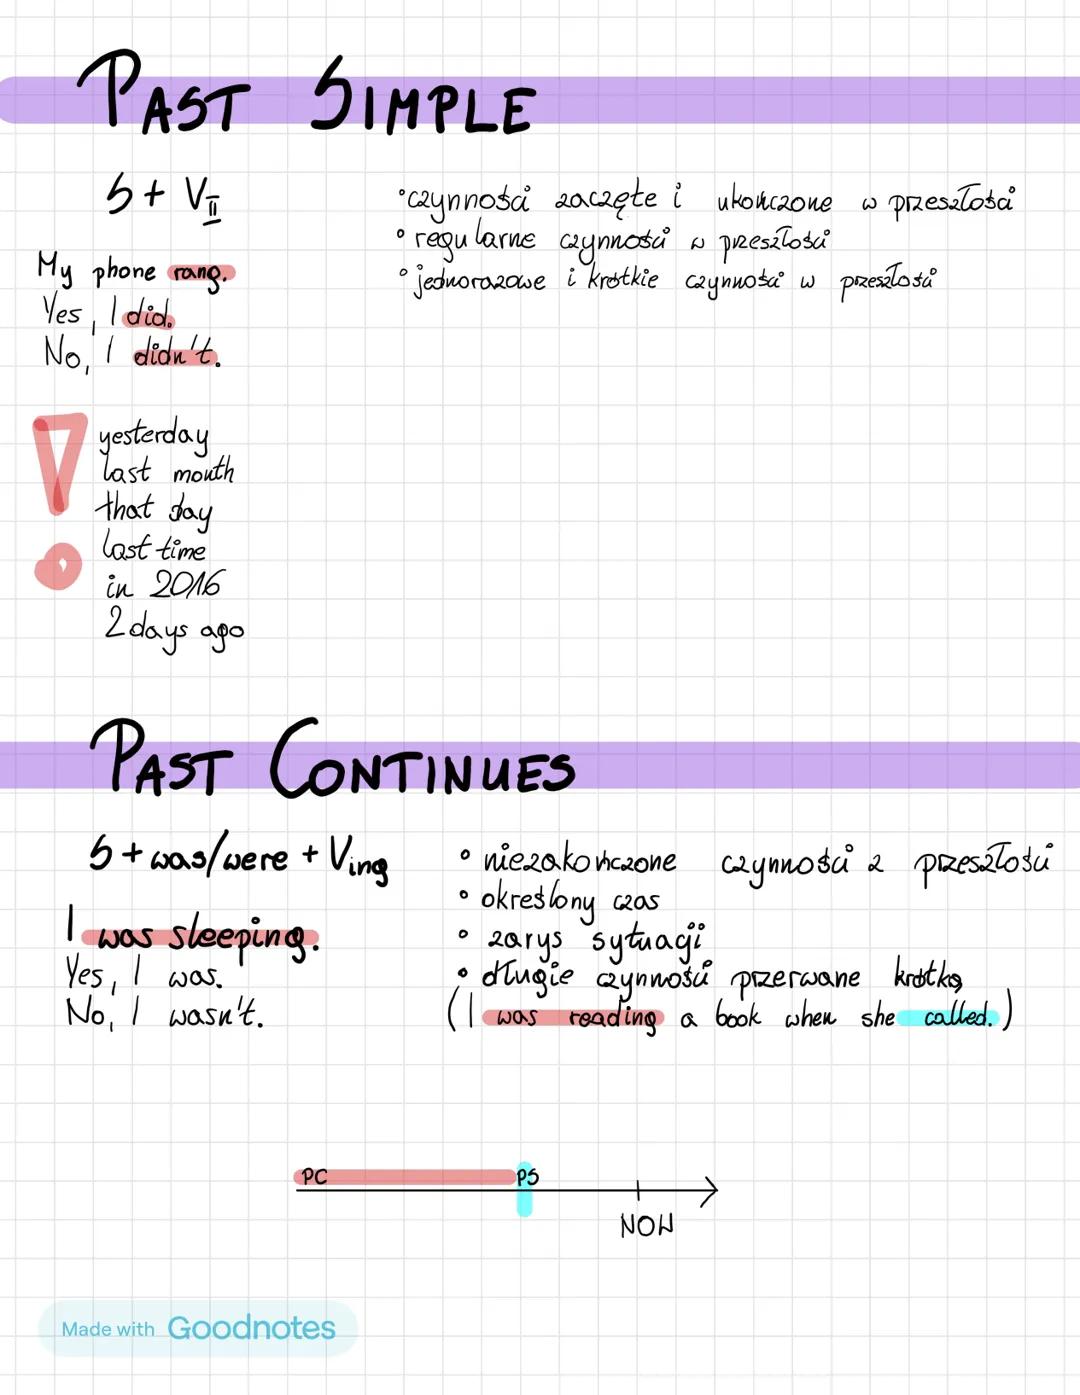 PAST SIMPLE
S + V II
• czynności zaczęte i ukończone w przeszłości
• regularne czynności w przeszłości
• jednorazowe i krótkie czynności w przeszłości
My phone rang.
Yes, I did.
No, I didn't.
yesterday
last month
that day
last time
in 2016
2 days ago
PAST CONTINUES
S + was/were + Ving
• niezakończone czynności z przeszłości
• określony czas
• zarys sytuacji
• długie czynności przerwane krótką
(I was reading a book when she called.)
I was sleeping.
Yes, I was.
No, I wasn't.
PC PS
NOW
Made with Goodnotes